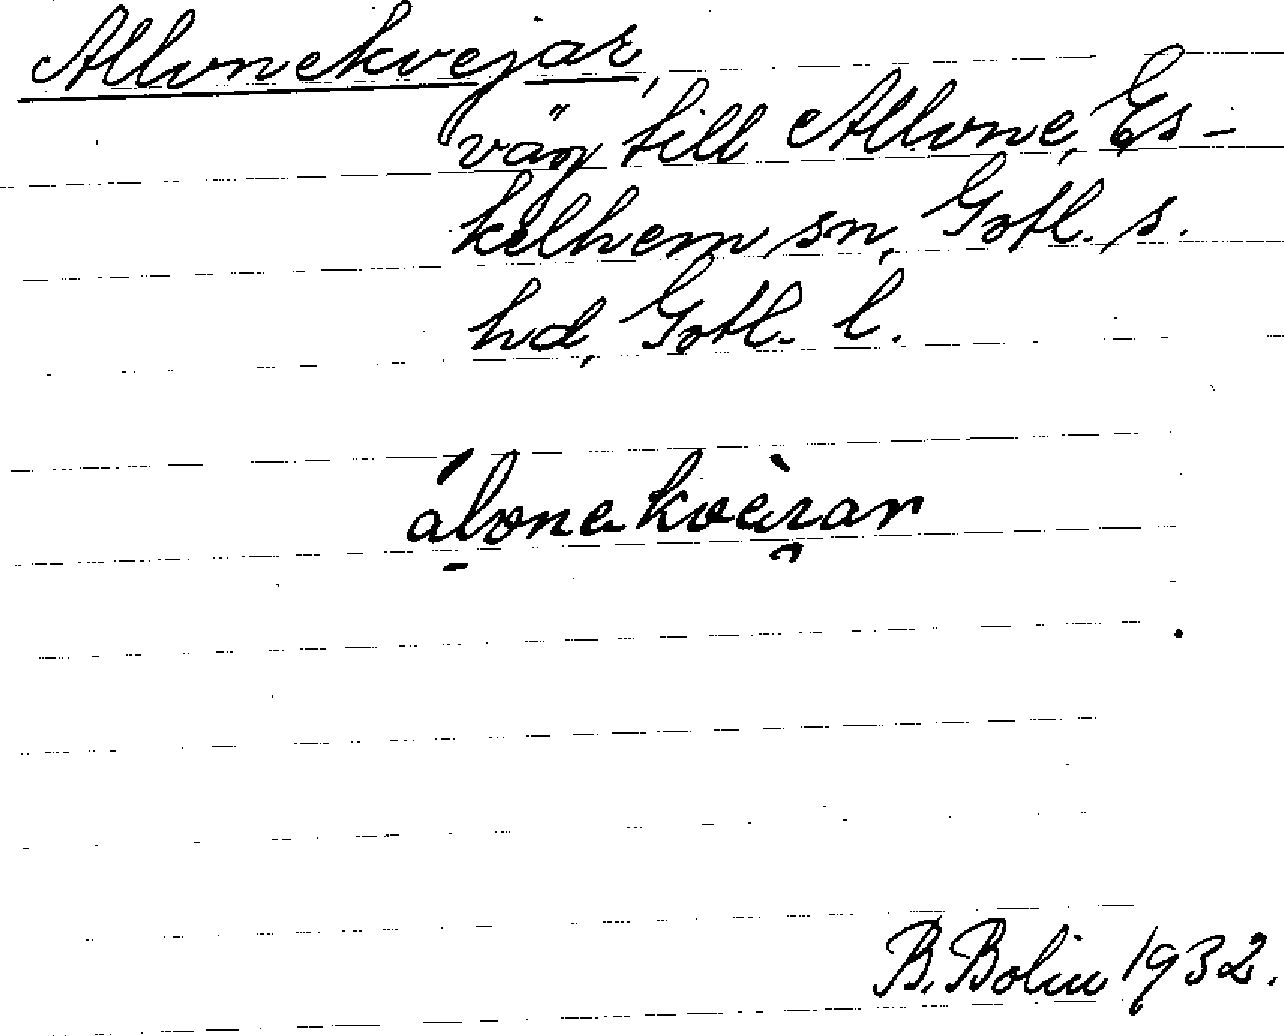 Allvnekvejar,
väg till Allvne, Es-
kelhem sn, Gotl. s.
hd, Gotl. l.
B. Bolin 1932.